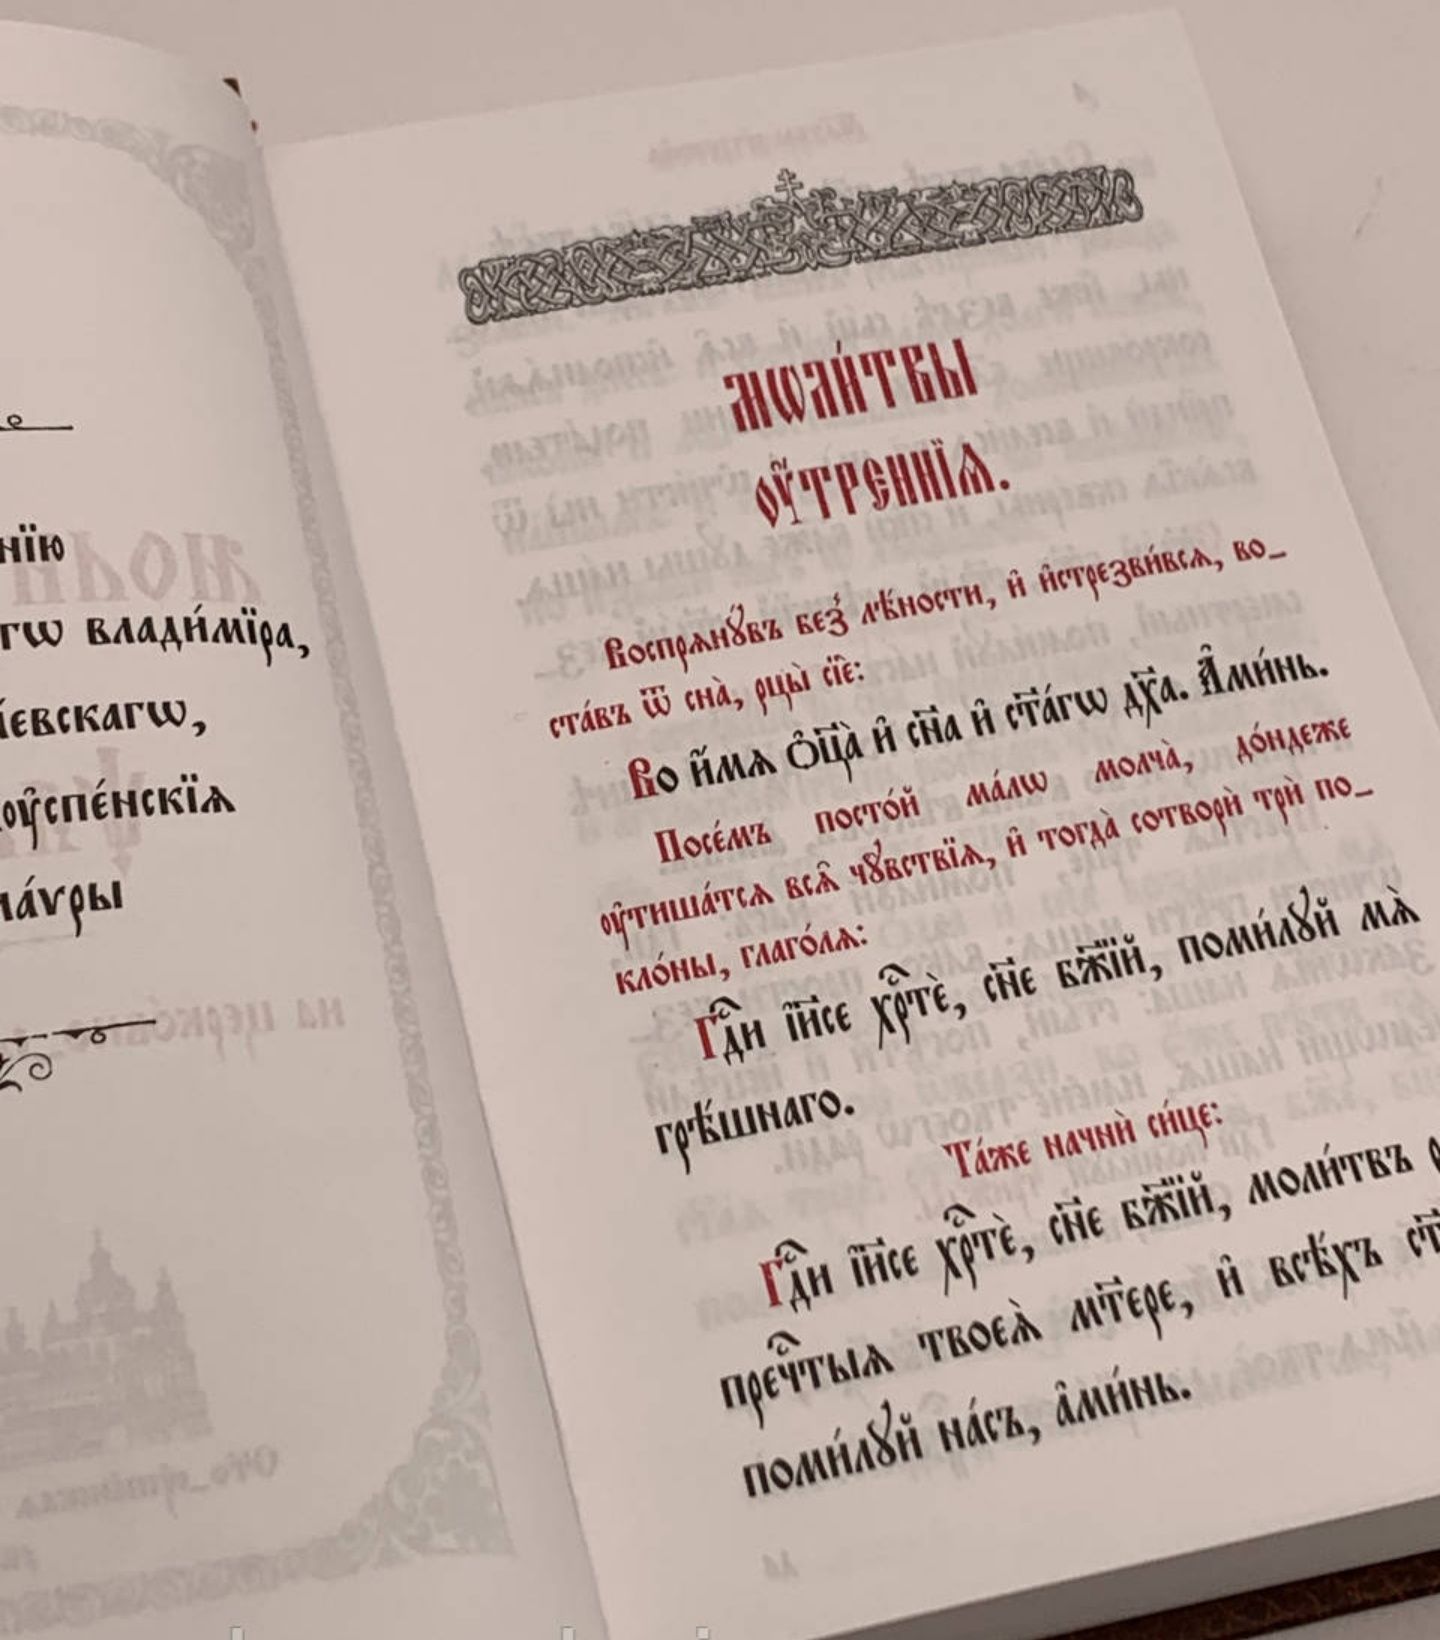 нїю
гѡ влади́мїра,
їевскагѡ,
оу҆спе́нскїѧ
ла́ѵры
МѠЛИ́ТВЫ
ОУ҆́ТРЕННЇѦ.
Воспрѧнꙋ́въ без̾ лѣ́ности, и҆ и҆стрезви́всѧ, во_
ста́въ ѿ сна̀, рцы̀ сїѐ:
Во и҆́мѧ ѻ҆ц҃а̀ и҆ сн҃а и҆ ст҃а́гѡ дх҃а. А҆ми́нь.
Посе́мъ посто́й ма́лѡ молча̀, до́ндеже
оу҆тиша́тсѧ всѧ҄ чꙋ҄вствїѧ, и҆ тогда̀ сотворѝ трѝ по_
кло́ны, глаго́лѧ:
Гдⷭ҇и і҆и҃се хрⷭ҇тѐ, сн҃е бж҃їй, поми́лꙋй мѧ̀
грѣ́шнаго.
Та́же начнѝ си́це:
Гдⷭ҇и і҆и҃се хрⷭ҇тѐ, сн҃е бж҃їй, моли́твъ
пречⷭ҇тыѧ твоеѧ̀ мт҃ере, и҆ всѣ́хъ ст҃
поми́лꙋй на́съ, а҆ми́нь.